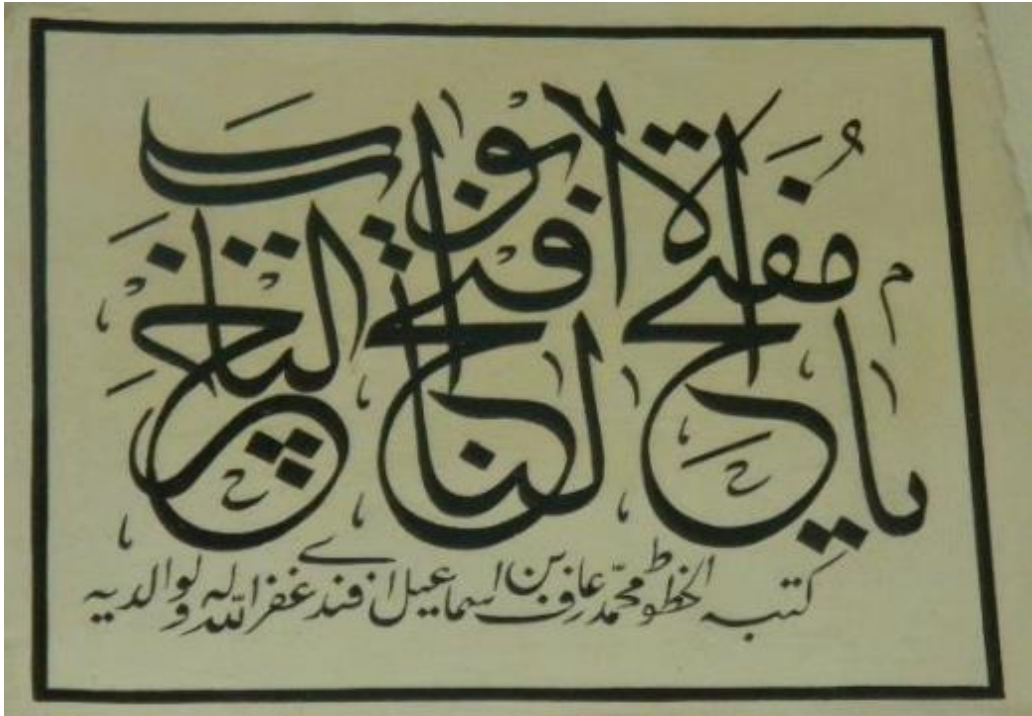 يا مفتح الابواب افتح لنا خير الباب
كتبه الخطاط محمد عارف بن اسماعيل افندي غفر الله له ولوالديه